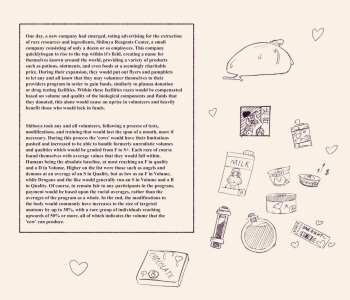 One day, a new company had emerged, toting advertising for the extraction
of rare resources and ingredients, Shibuya Reagents Center, a small
company consisting of only a dozen or so employees. This company
quickly began to rise to the top within it's field, creating a name for
themselves known around the world, providing a variety of products
such as potions, ointments, and even foods at a seemingly charitable
price. During their expansion, they would put out flyers and pamphlets
to let any and all know that they may volunteer themselves to their
providers program in order to gain funds, similarly to plasma donation
or drug testing facilities. Within these facilities races would be compensated
based on volume and quality of the biological components and fluids that
they donated, this alone would cause an uprise in volunteers and heavily
benefit those who would lack in funds.
Shibuya took any and all volunteers, following a process of tests,
modifications, and training that would last the span of a month, more if
necessary. During this process the 'cows' would have their limitations
pushed and increased to be able to handle formerly unrealistic volumes
and qualities which would be graded from F to S+. Each race of course
found themselves with average values that they would fall within.
Humans being the absolute baseline, at most reaching an F in quality
and a D in Volume. Higher on the list were those such as angels and
demons at an average of an S in Quality, but as low as an F in Volume,
while Dragons and the like would generally run an S in Volume and a B
in Quality. Of course, to remain fair to any participants in the program,
payment would be based upon the racial averages, rather than the
averages of the program as a whole. In the end, the modifications to
the body would commonly have increases to the size of targeted
anatomy by up to 30%, with a rare group of individuals reaching
upwards of 50% or more, all of which indicates the volume that the
'cow' can produce.
MILK
CHOCOLATE